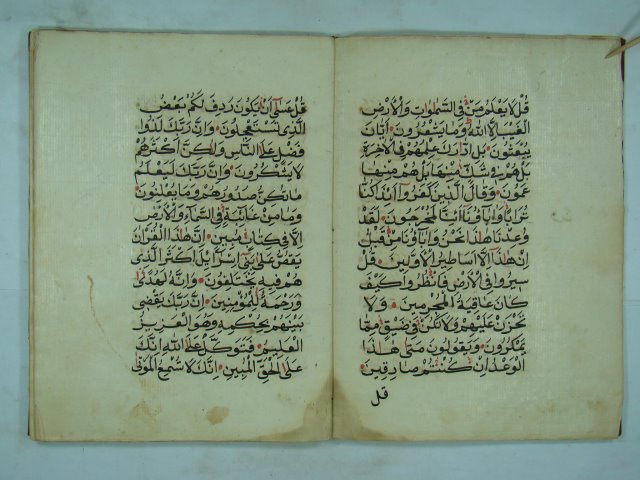 قُل لَا يَعْلَمُ مَنْ فِي السَّمَاوَاتِ وَالْأَرْضِ
الْغَيْبَ إِلَّا اللَّهُ وَمَا يَشْعُرُونَ أَيَّانَ
يُبْعَثُونَ بَلِ ادَّارَكَ عِلْمُهُمْ فِي الْآخِرَةِ
بَلْ هُمْ فِي شَكٍّ مِنْهَا بَلْ هُمْ مِنْهَا
عَمُونَ وَقَالَ الَّذِينَ كَفَرُوا أَإِذَا كُنَّا
تُرَابًا وَآبَاؤُنَا أَئِنَّا لَمُخْرَجُونَ لَقَدْ
وُعِدْنَا هَذَا نَحْنُ وَآبَاؤُنَا مِنْ قَبْلُ
إِنْ هَذَا إِلَّا أَسَاطِيرُ الْأَوَّلِينَ قُلْ
سِيرُوا فِي الْأَرْضِ فَانْظُرُوا كَيْفَ
كَانَ عَاقِبَةُ الْمُجْرِمِينَ وَلَا
تَحْزَنْ عَلَيْهِمْ وَلَا تَكُنْ فِي ضَيْقٍ مِمَّا
يَمْكُرُونَ وَيَقُولُونَ مَتَى هَذَا
الْوَعْدُ إِنْ كُنْتُمْ صَادِقِينَ
قل
قُلْ عَسَى أَنْ يَكُونَ رَدِفَ لَكُمْ بَعْضُ
الَّذِي تَسْتَعْجِلُونَ وَإِنَّ رَبَّكَ لَذُو
فَضْلٍ عَلَى النَّاسِ وَلَكِنَّ أَكْثَرَهُمْ
لَا يَشْكُرُونَ وَإِنَّ رَبَّكَ لَيَعْلَمُ
مَا تُكِنُّ صُدُورُهُمْ وَمَا يُعْلِنُونَ
وَمَا مِنْ غَائِبَةٍ فِي السَّمَاءِ وَالْأَرْضِ
إِلَّا فِي كِتَابٍ مُبِينٍ إِنَّ هَذَا الْقُرْآنَ
يَقُصُّ عَلَى بَنِي إِسْرَائِيلَ أَكْثَرَ الَّذِي
هُمْ فِيهِ يَخْتَلِفُونَ وَإِنَّهُ لَهُدًى
وَرَحْمَةٌ لِلْمُؤْمِنِينَ إِنَّ رَبَّكَ يَقْضِي
بَيْنَهُمْ بِحُكْمِهِ وَهُوَ الْعَزِيزُ
الْعَلِيمُ فَتَوَكَّلْ عَلَى اللَّهِ إِنَّكَ
عَلَى الْحَقِّ الْمُبِينِ إِنَّكَ لَا تُسْمِعُ الْمَوْتَى